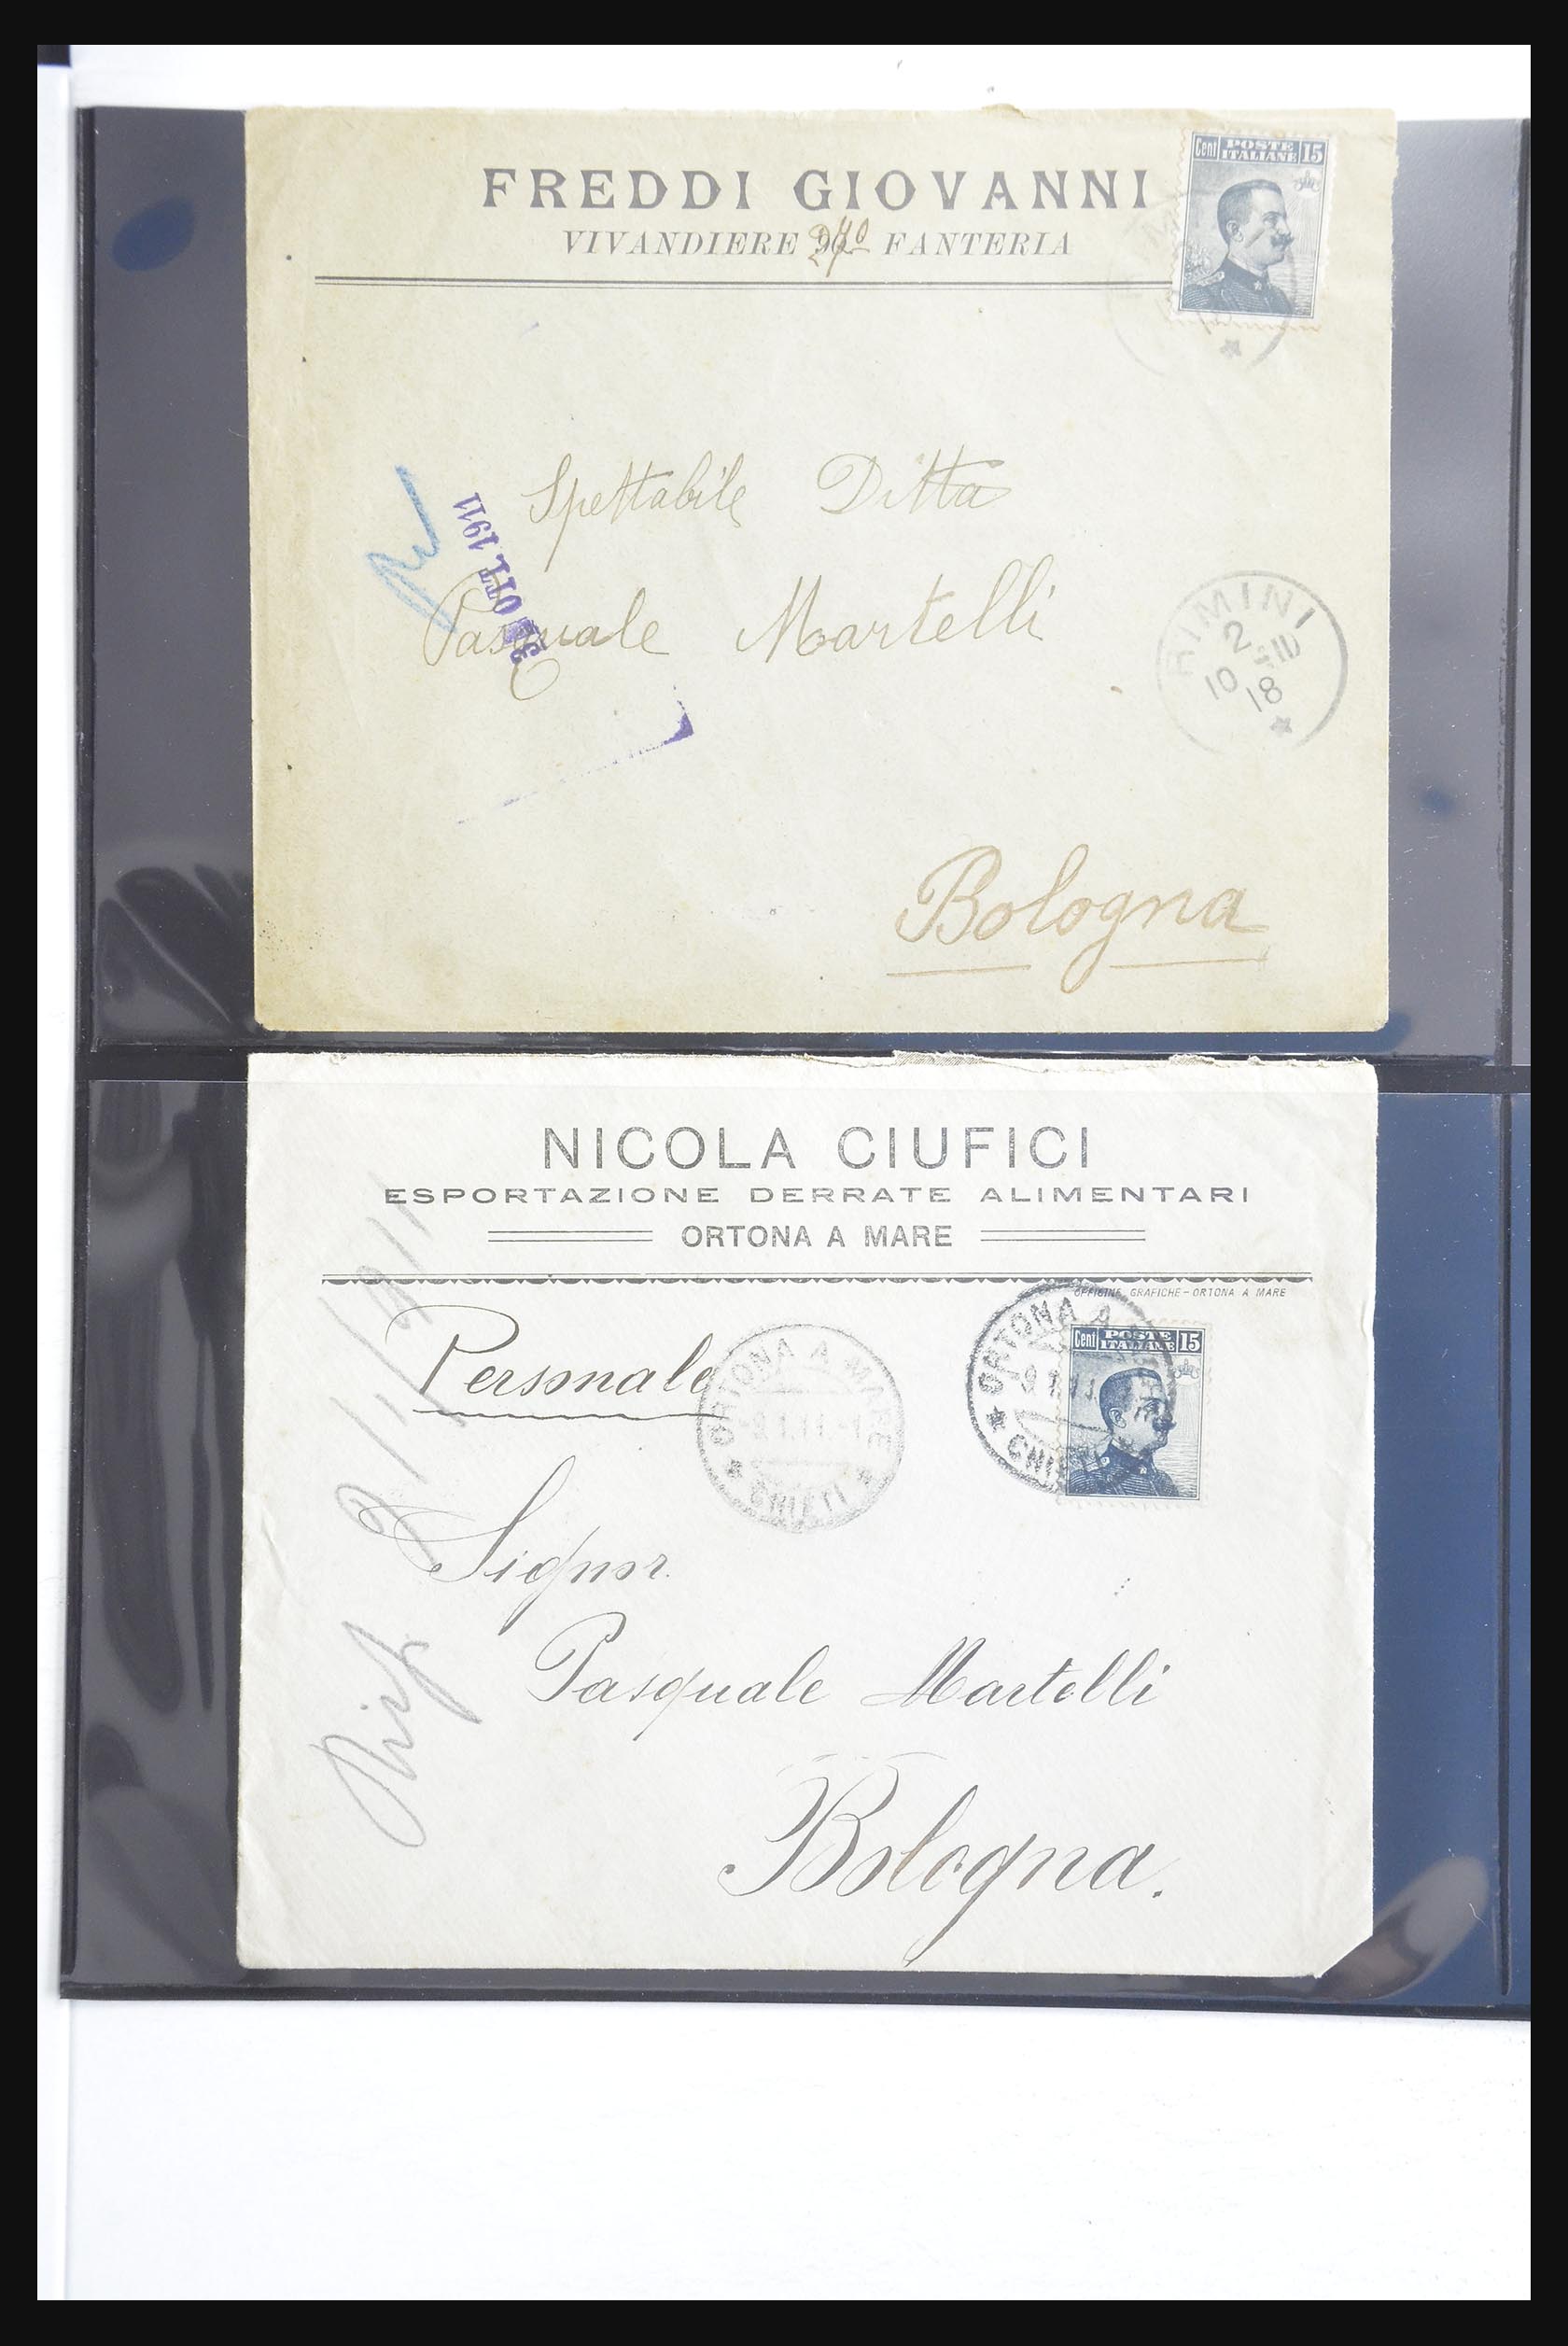 FREDDI GIOVANNI
VIVANDIERE FANTERIA
Cent POSTE ITALIANE 15
Spettabile Ditta
3 OTT. 1911
Pasquale Martelli
RIMINI
2
10
18
Bologna
NICOLA CIUFICI
ESPORTAZIONE DERRATE ALIMENTARI
ORTONA A MARE
OFFICINE GRAFICHE - ORTONA A MARE
Personale
ORTONA A MARE
9.1.11.
CHIETI
ORTONA A
9.1.11.
Cent POSTE ITALIANE 15
9/1/1911
Signor.
Pasquale Martelli
Bologna.